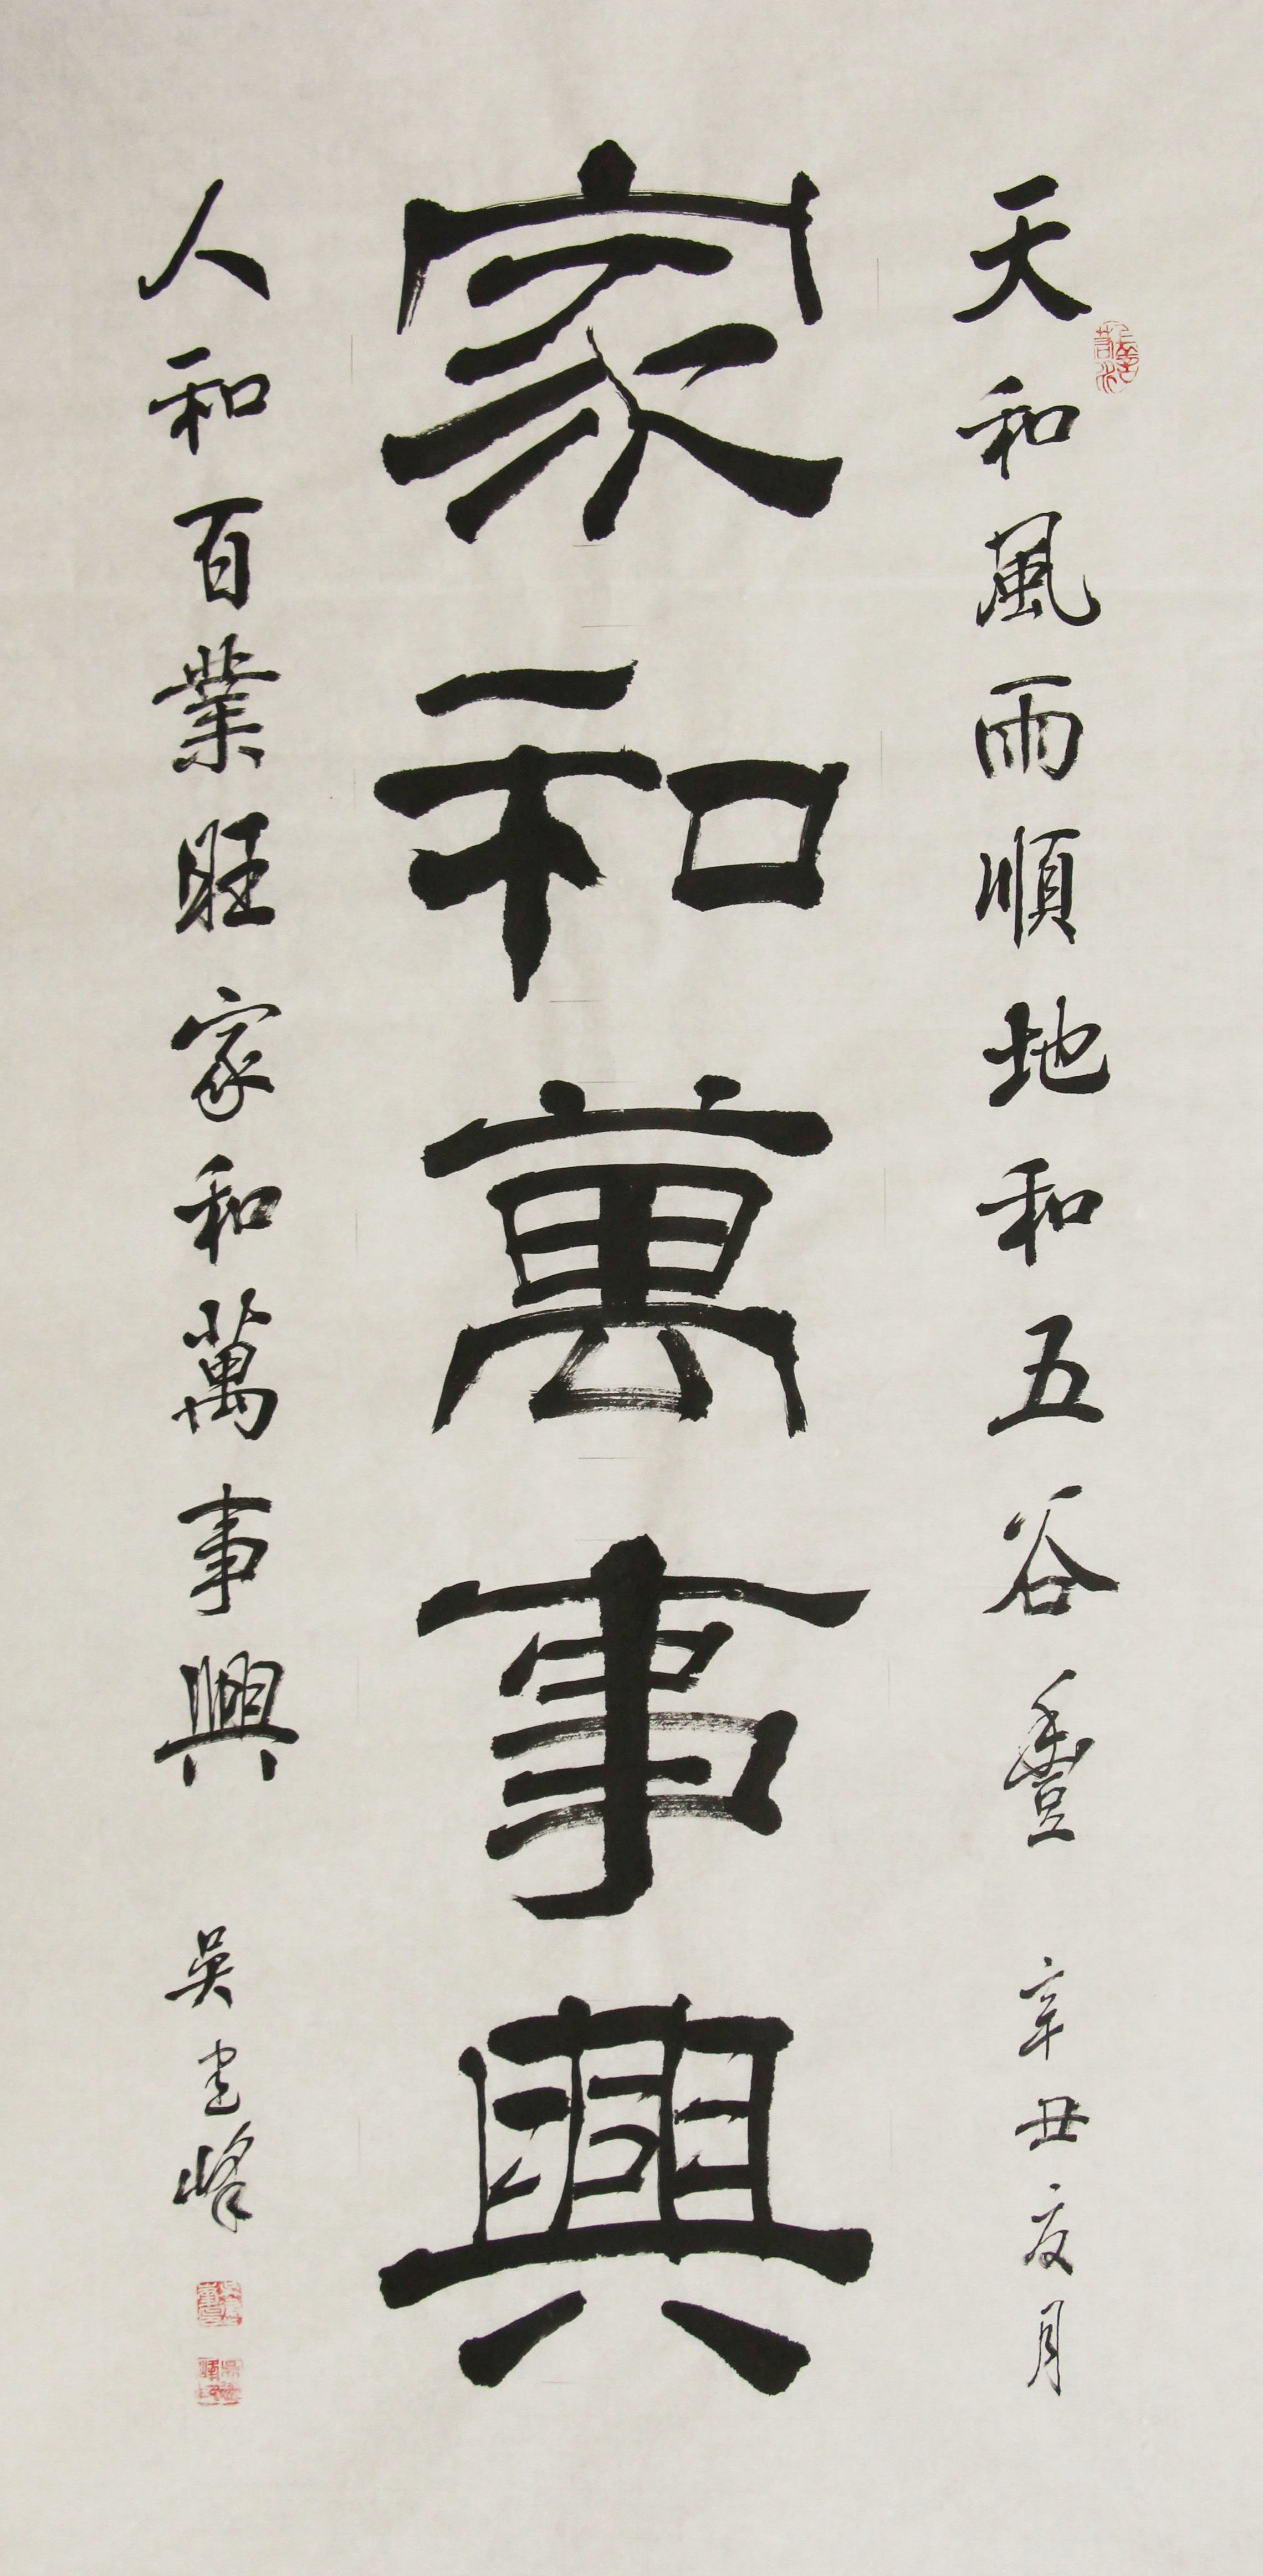 天和風雨順地和五谷豐 辛丑夜月
家和萬事興
人和百業旺家和萬事興 吴 峰